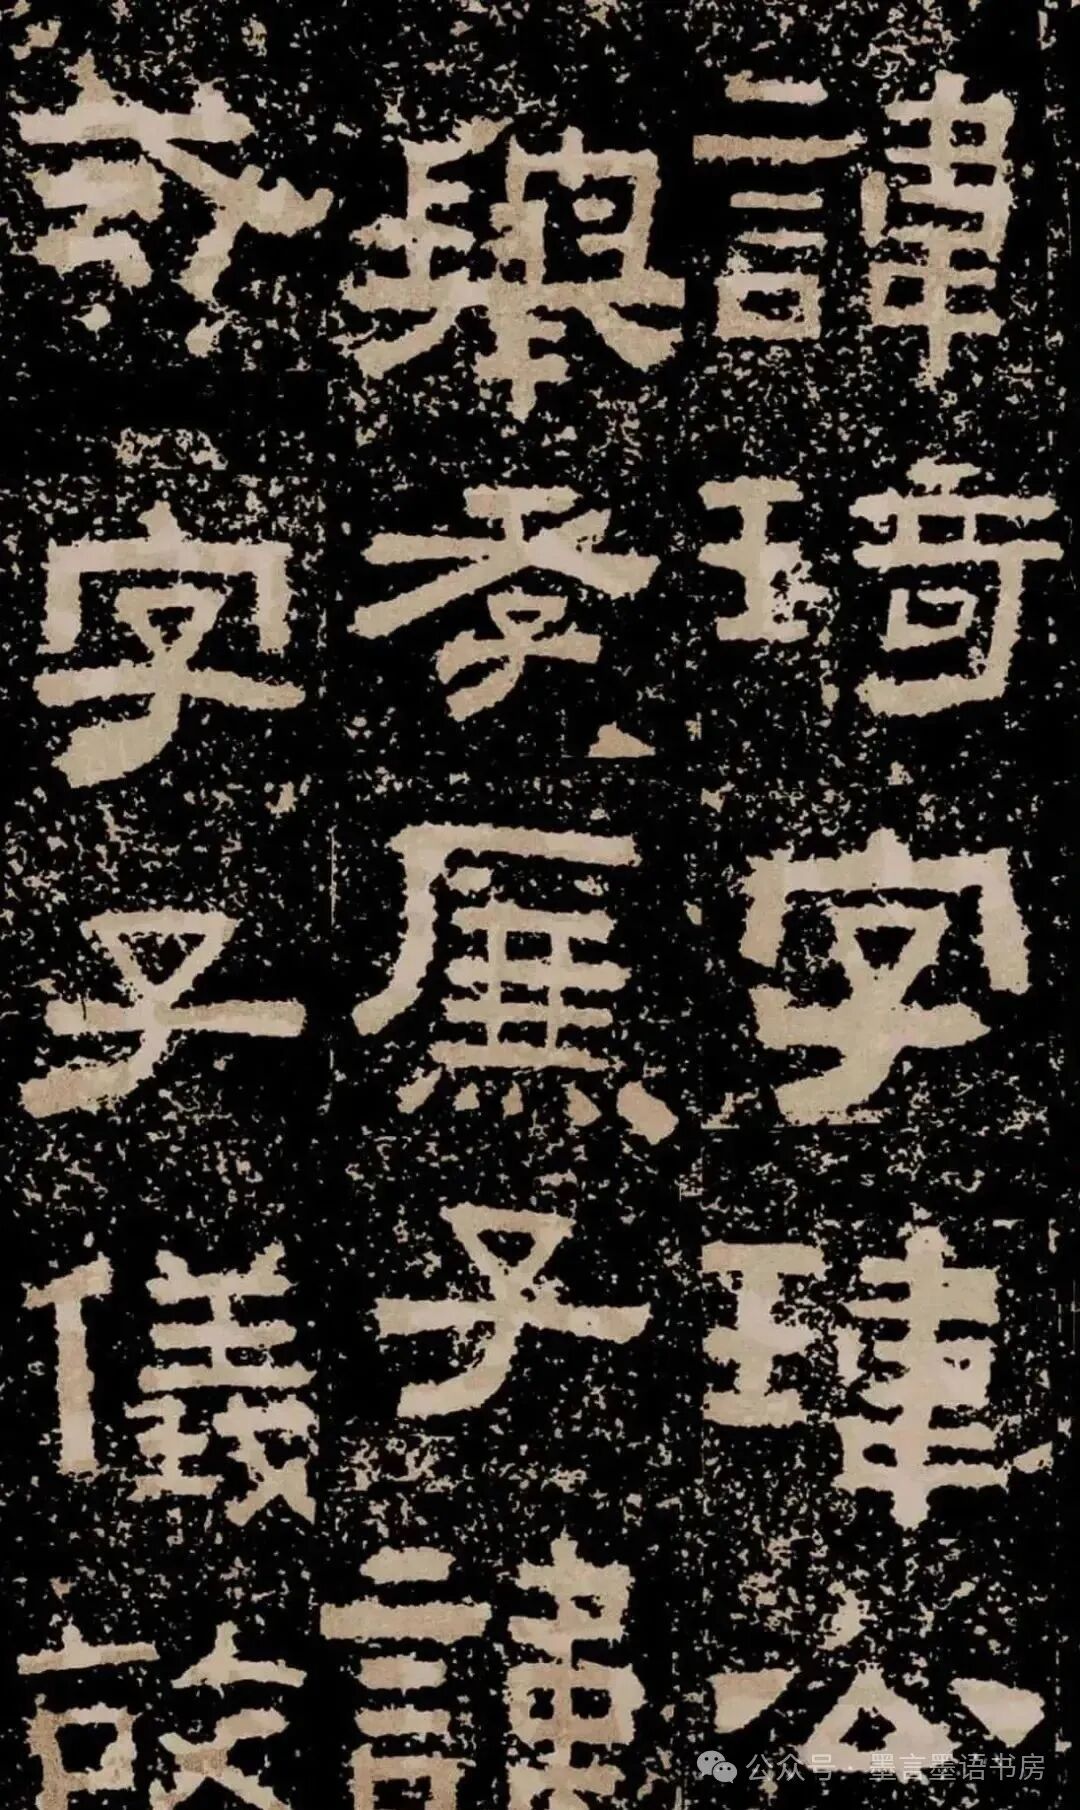 諱琦字瑋公
舉孝廉子諱
字子儀故
公众号·墨言墨语书房